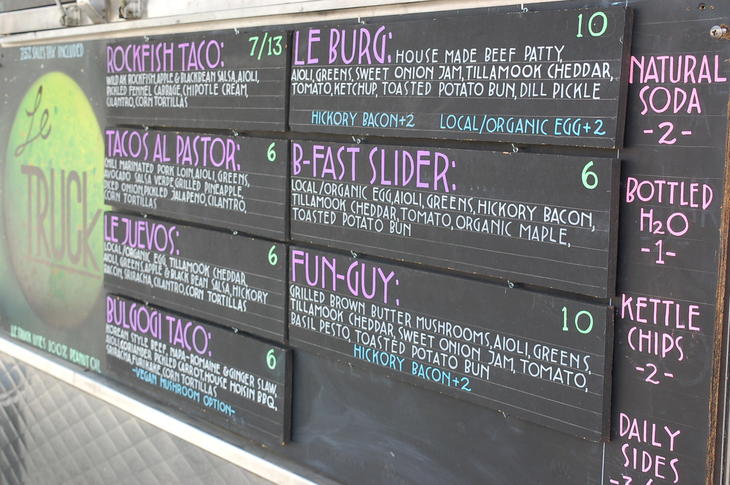 7.75% SALES TAX INCLUDED
Le
TRUCK
LE TRUCK USES 100% PEANUT OIL
ROCKFISH TACO: 7/13
WILD AK ROCKFISH, APPLE & BLACKBEAN SALSA, AIOLI,
PICKLED FENNEL CABBAGE, CHIPOTLE CREAM,
CILANTRO, CORN TORTILLAS
TACOS AL PASTOR: 6
CHILI MARINATED PORK LOIN, AIOLI, GREENS,
AVOCADO SALSA VERDE, GRILLED PINEAPPLE,
DICED ONION, PICKLED JALAPENO, CILANTRO,
CORN TORTILLAS
LE JUEVOS: 6
LOCAL/ORGANIC EGG, TILLAMOOK CHEDDAR,
AIOLI, GREENS, APPLE & BLACK BEAN SALSA, HICKORY
BACON, SRIRACHA, CILANTRO, CORN TORTILLAS
BULGOGI TACO: 6
KOREAN STYLE BEEF, NAPA-ROMAINE & GINGER SLAW,
AIOLI, CORIANDER PICKLED CARROT, HOUSE HOISIN BBQ,
SRIRACHA, FURIKAKE, CORN TORTILLAS
-VEGAN MUSHROOM OPTION-
LE BURG: HOUSE MADE BEEF PATTY, 10
AIOLI, GREENS, SWEET ONION JAM, TILLAMOOK CHEDDAR,
TOMATO, KETCHUP, TOASTED POTATO BUN, DILL PICKLE
HICKORY BACON+2 LOCAL/ORGANIC EGG+2
B-FAST SLIDER: 6
LOCAL/ORGANIC EGG, AIOLI, GREENS, HICKORY BACON,
TILLAMOOK CHEDDAR, TOMATO, ORGANIC MAPLE,
TOASTED POTATO BUN
FUN-GUY: 10
GRILLED BROWN BUTTER MUSHROOMS, AIOLI, GREENS,
TILLAMOOK CHEDDAR, SWEET ONION JAM, TOMATO,
BASIL PESTO, TOASTED POTATO BUN
HICKORY BACON+2
NATURAL
SODA
-2-
BOTTLED
H2O
-1-
KETTLE
CHIPS
-2-
DAILY
SIDES